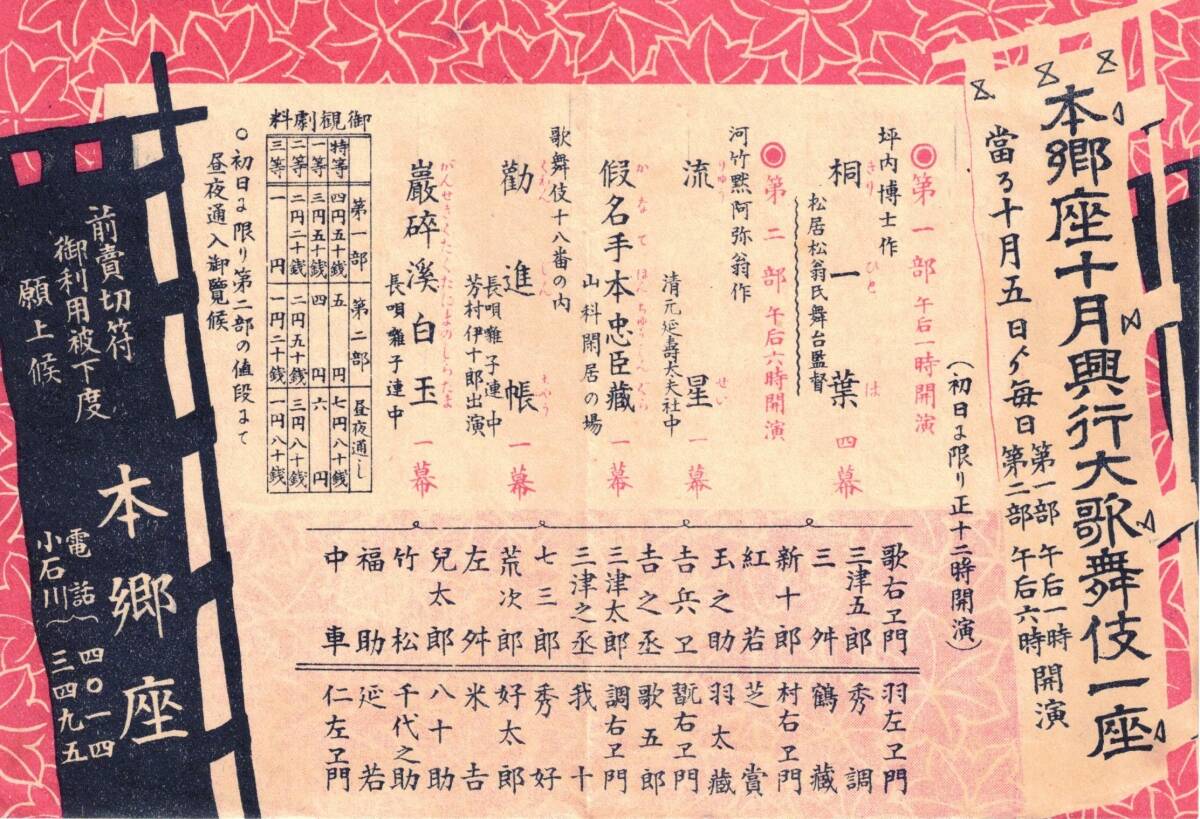 本郷座十月興行大歌舞伎一座
當る十月五日ゟ毎日
第一部 午后一時
第二部 午后六時
開演
(初日に限り正十二時開演)
◉第一部 午后一時開演
坪内博士作
桐一葉 四幕
きりひとは
松居松翁氏舞台監督
◉第二部 午后六時開演
河竹黙阿弥翁作
流星 一幕
りゆうせい
清元延壽太夫社中
假名手本忠臣藏 一幕
山科閑居の場
歌舞伎十八番の内
勸進帳 一幕
長唄囃子連中
芳村伊十郎出演
巖碎溪白玉 一幕
長唄囃子連中
御観劇料
第一部 第二部 昼夜通し
特等 四円五十銭 五円 七円八十銭
一等 三円五十銭 四円 六円
二等 二円二十銭 二円五十銭 三円八十銭
三等 一円 一円二十銭 一円八十銭
○初日に限り第二部の値段にて
昼夜通入御覧候
歌右ヱ門
三津五郎
三舛
新十郎
紅若
玉之助
吉兵ヱ
吉之丞
三津太郎
三津之丞
七三郎
荒次郎
左舛
兒太郎
竹松
福助
中車
羽左ヱ門
秀調
鶴藏
村右ヱ門
芝賞
羽太藏
翫右ヱ門
歌五郎
調右ヱ門
我十
秀好
好太郎
米吉
八十助
千代之助
延若
仁左ヱ門
前賣切符
御利用被下度
願上候
本郷座
電話
小石川
四〇一四
三四九五